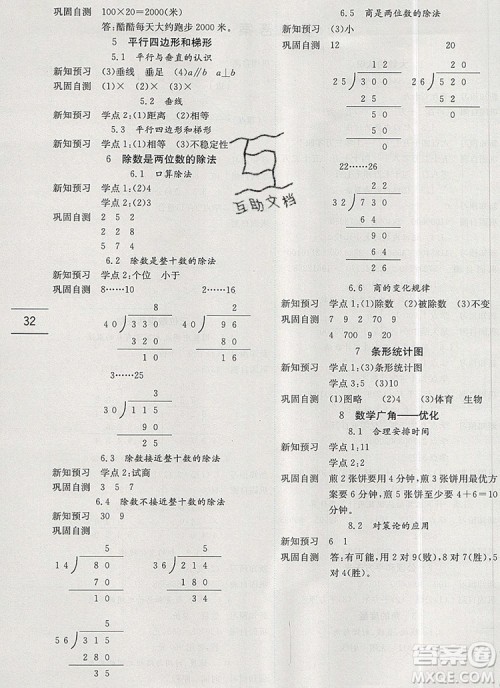 巩固自测 100×20=2000(米)
答:酷酷每天大约跑步 2000 米。
5 平行四边形和梯形
5.1 平行与垂直的认识
新知预习 (3)垂线 垂足 (4)a∥b a⊥b
巩固自测 (1)× (2)× (3)×
5.2 垂线
新知预习 学点 2:(1)距离 (2)相等
5.3 平行四边形和梯形
新知预习 学点 1:(1)相等 (3)不稳定性
6 除数是两位数的除法
6.1 口算除法
新知预习 学点 1:(2)4
学点 2:(3)4
巩固自测 2 5 2
9 7 8
6.2 除数是整十数的除法
新知预习 学点 2:个位 小于
巩固自测 8……10 2……16
8 2
40 330 40 96
320 80
10 16
3……25
3
30 115
90
25
6.3 除数接近整十数的除法
新知预习 学点 2:试商
6.4 除数不接近整十数的除法
新知预习 30 9
巩固自测
5
14 75
70
5
9
24 218
216
2
5
56 315
280
35
32
6.5 商是两位数的除法
新知预习 (3)小
巩固自测 12 20
12 20
25 310 26 520
25 52
60 0
50
10
22……26
22
32 730
64
90
64
26
6.6 商的变化规律
新知预习 学点 1:(1)除数 (2)被除数 (3)不变
巩固自测 7 70 700
4 700 9 2 9
7 条形统计图
新知预习 学点 1:(3)条形统计图
学点 2:(3)5 (3)10
巩固自测 (1)图略 (2)4 (3)体育 生物
8 数学广角——优化
8.1 合理安排时间
新知预习 学点 1:11
学点 2:
巩固自测 煎 2 张饼用 4 分钟,煎 3 张饼的最优方
案要 6 分钟,煎 5 张饼最少 4+6=10
分钟。
8.2 对策论的应用
新知预习 6 1
巩固自测 答:有可能,用 2 对 9(败),8 对 7(胜),
5 对 4(胜)。
互助文档
MXQE.COM